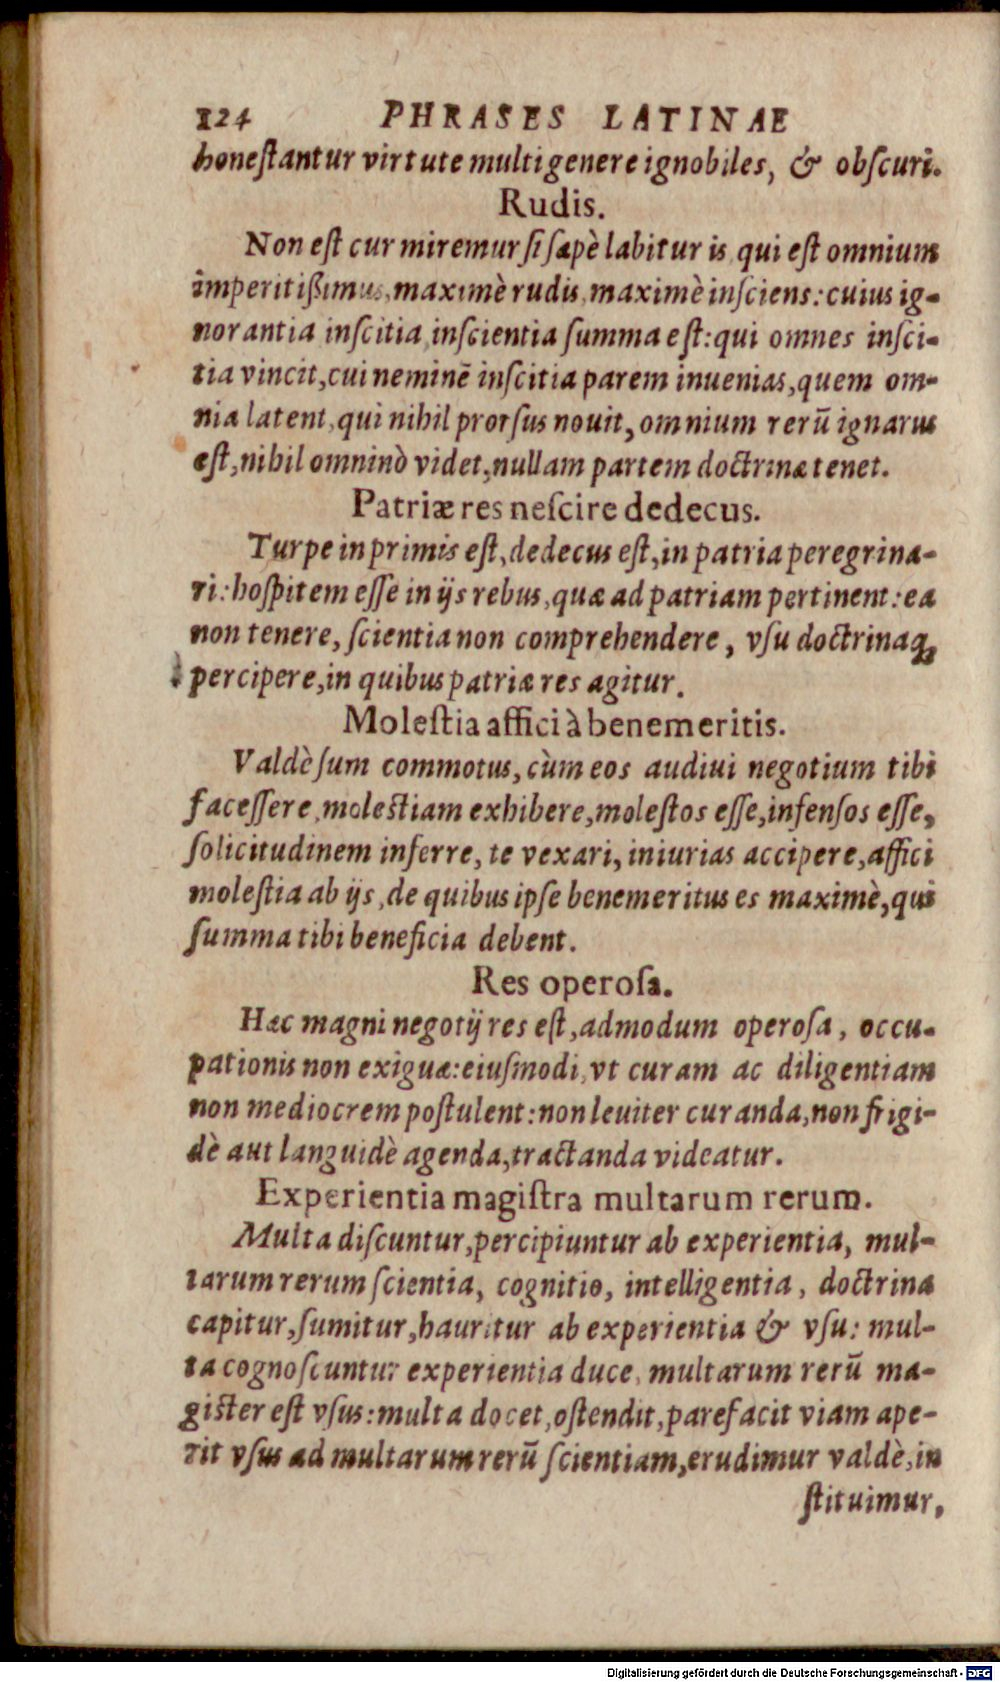 124 PHRASES LATINAE
honeſtantur virtute multi genere ignobiles, & obſcuri.
Rudis.
Non eſt cur miremur ſi ſæpè labitur is, qui eſt omnium
imperitißimus, maximè rudis, maximè inſciens: cuius ig-
norantia inſcitia, inſcientia ſumma eſt: qui omnes inſci-
tia vincit, cui neminē inſcitia parem inuenias, quem om-
nia latent, qui nihil prorſus nouit, omnium rerū ignarus
eſt, nihil omninò videt, nullam partem doctrinæ tenet.
Patriæ res neſcire dedecus.
Turpe in primis eſt, dedecus eſt, in patria peregrina-
ri: hoſpitem eſſe in ijs rebus, quæ ad patriam pertinent: ea
non tenere, ſcientia non comprehendere, vſu doctrinaq;
percipere, in quibus patriæ res agitur.
Moleſtia affici à benemeritis.
Valdè ſum commotus, cùm eos audiui negotium tibi
faceſſere, moleſtiam exhibere, moleſtos eſſe, infenſos eſſe,
ſolicitudinem inferre, te vexari, iniurias accipere, affici
moleſtia ab ijs, de quibus ipſe benemeritus es maximè, qui
ſumma tibi beneficia debent.
Res operoſa.
Hæc magni negotij res eſt, admodum operoſa, occu-
pationis non exiguæ: eiuſmodi, vt curam ac diligentiam
non mediocrem poſtulent: non leuiter curanda, non frigi-
dè aut languidè agenda, tractanda videatur.
Experientia magiſtra multarum rerum.
Multa diſcuntur, percipiuntur ab experientia, mul-
tarum rerum ſcientia, cognitio, intelligentia, doctrina
capitur, ſumitur, hauritur ab experientia & vſu: mul-
ta cognoſcuntur experientia duce, multarum rerū ma-
giſter eſt vſus: multa docet, oſtendit, parefacit viam ape-
rit vſus ad multarum rerū ſcientiam, erudimur valdè, in
ſtituimur,
Digitalisierung gefördert durch die Deutsche Forschungsgemeinschaft - DFG